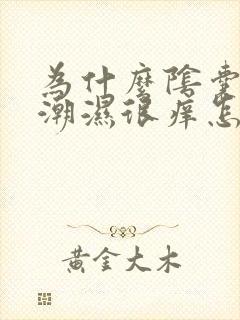 為什麼陰囊
潮濕很癢怎
黃金大木